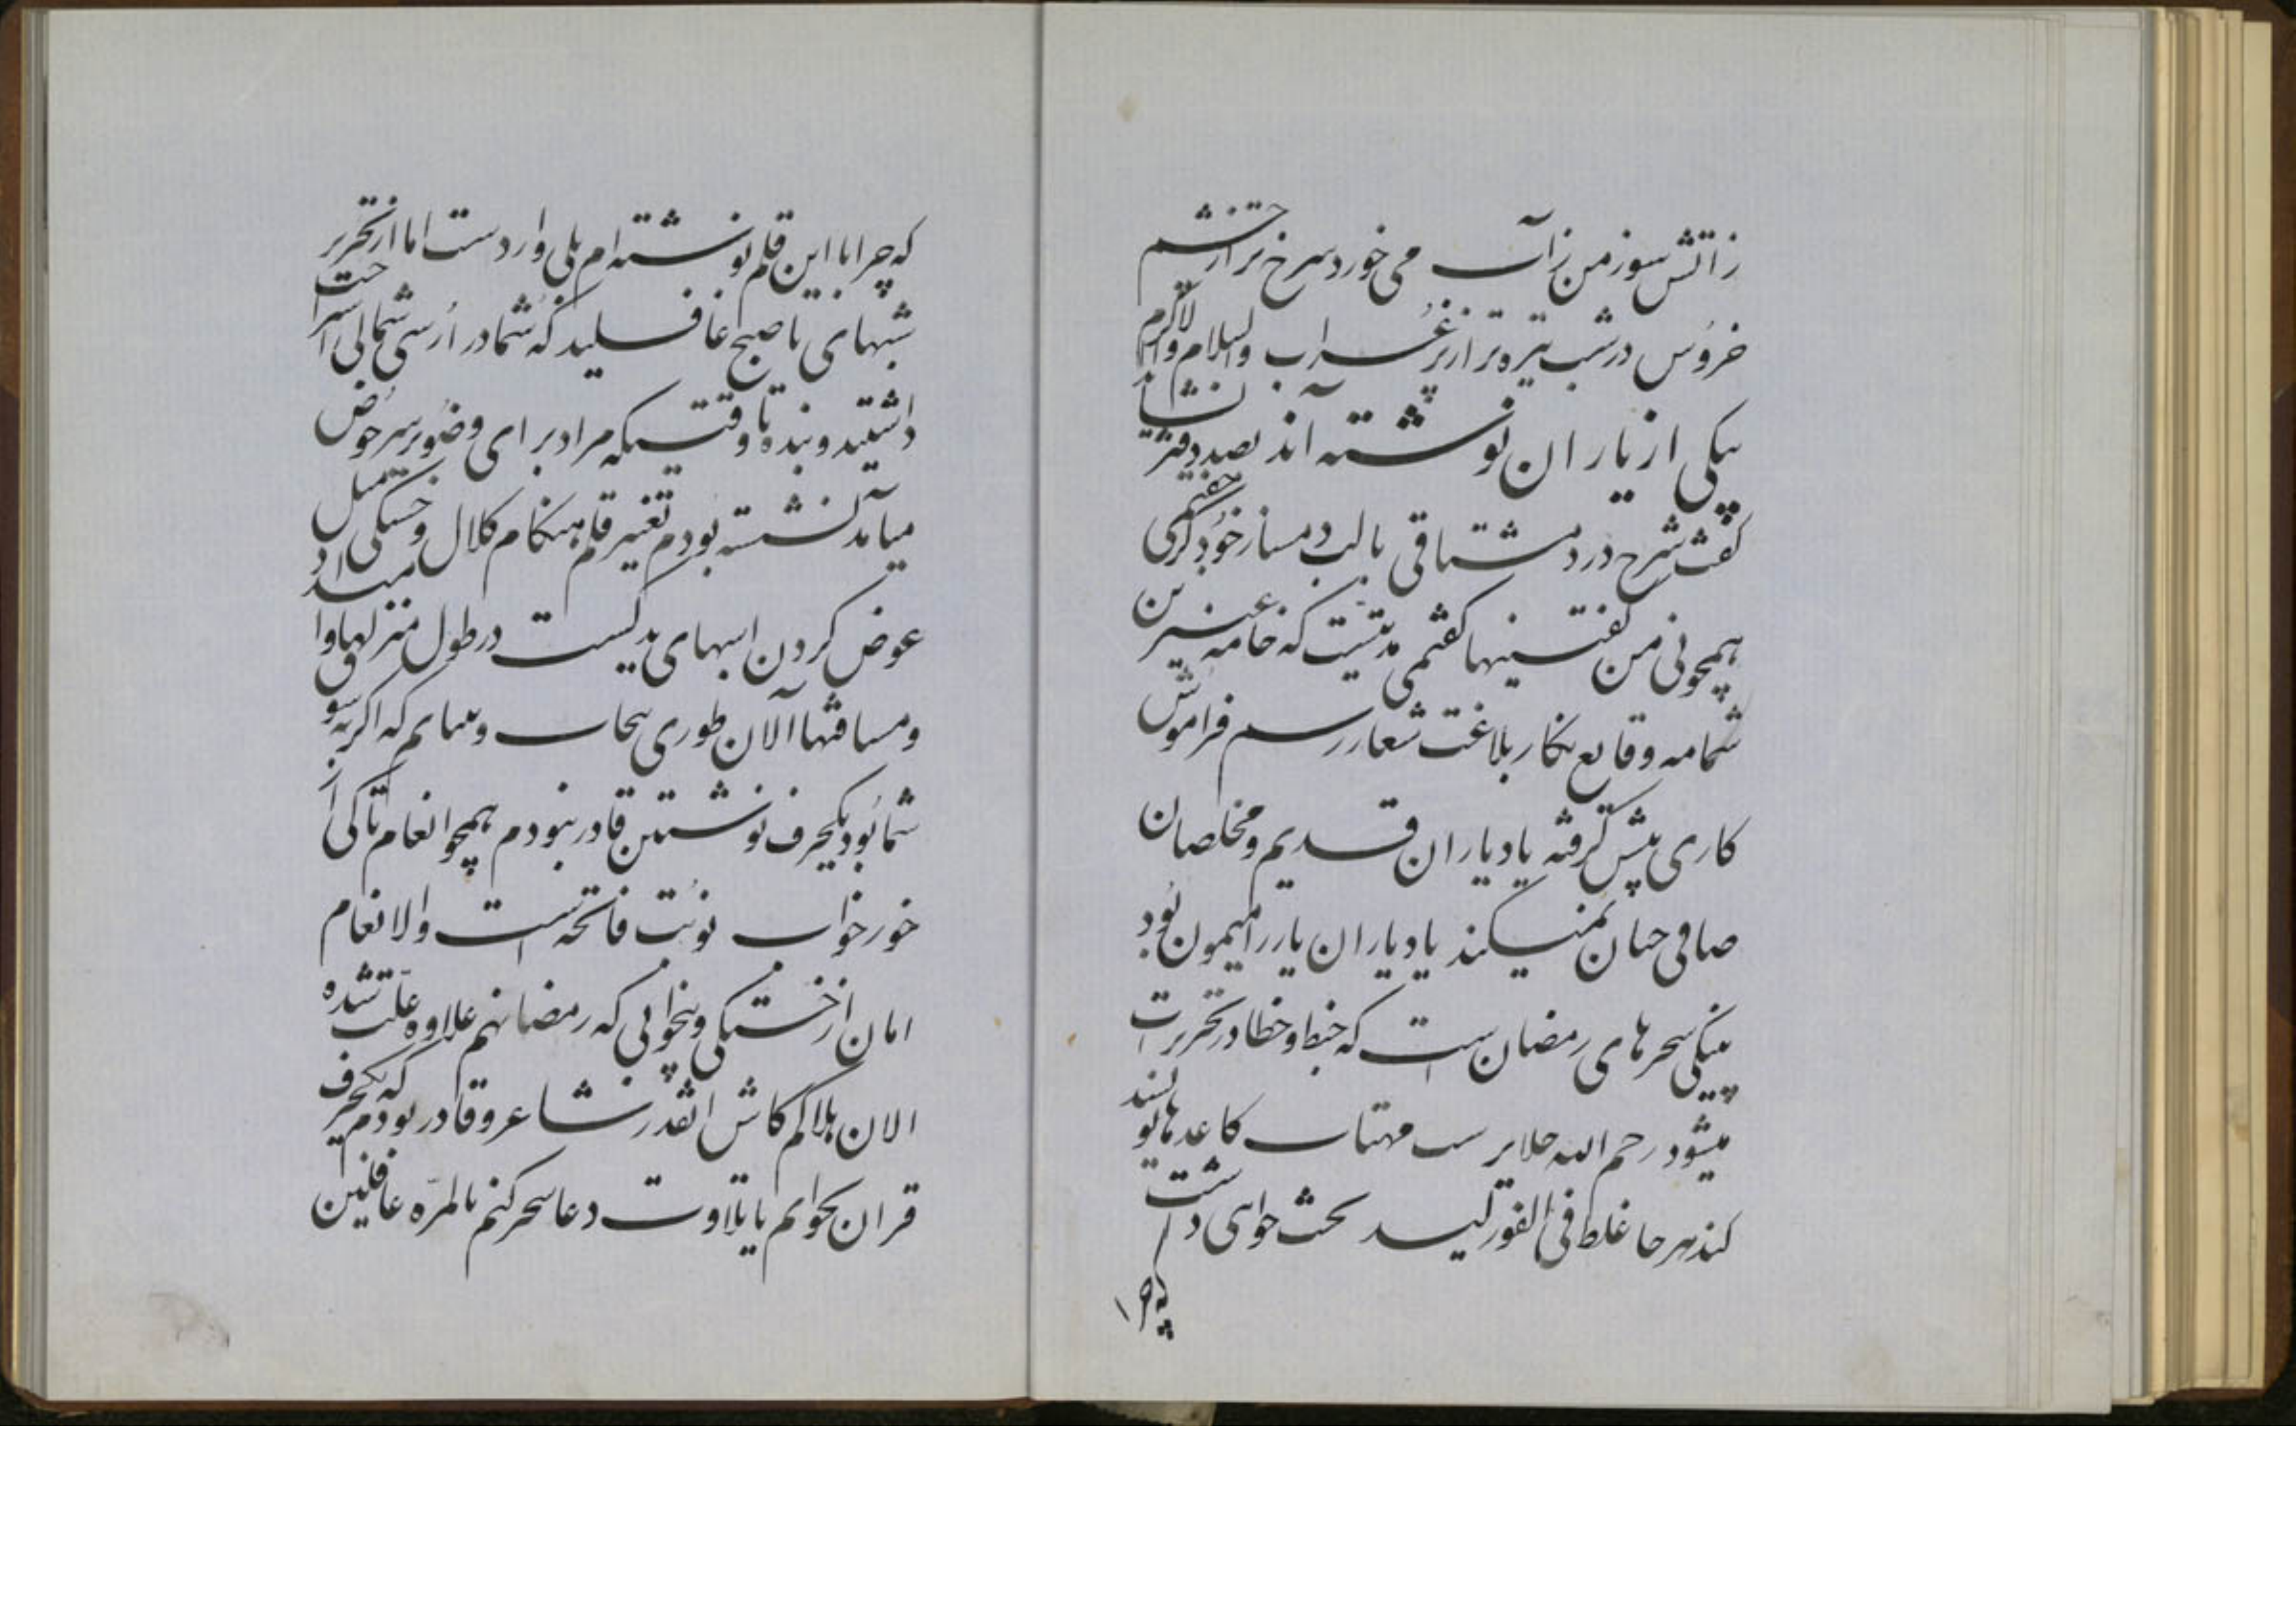 ز اتش سوز من زآب می خورد سرخ تر از چشم
خروس در شب تیره تر از پر غراب والسلام والاکرام
بیکی از یاران نوشته آند بصد دفتر نشاید
کفت شرح درد مشتاقی بالب دمساز خود کر جفتمی
همچو نی من کفتنیها کفتمی مدتیست که خامه عنبرین
شمامه وقایع نکار بلاغت شعار رسم فراموش
کاری پیش کرفته یاد یاران قدیم و مخلصان
صافی جنان نمیکند یاد یاران یار را میمون بود
پینکی سحرهای رمضان است که خبط و خطا در تحریرات
میشود رحم الله حلابر مهتاب کاغدها نویسند
کند هر جا غلط فی الفور لیسد بحث خواهی داشت
که چرا با این قلم نوشته ام بلی وارد ست اما از تحریر
شبهای تا صبح غافلید که شما در ارسی شمالی استراحت
داشتید و بنده تا وقتیکه مراد برای وضو بر سر حوض
میآمد نشسته بودم تغییر قلم هنکام کلال و خستکی مثل
عوض کردن اسبهای یدکیست در طول منزلها و امتداد
ومسافتها آلان طوری بیخاب و بیتابم که اکر نه بسوی
شما بود یکحرف نوشتن قادر نبودم همچو انعام تا کی از
خور خواب نوبت فاتحه است والانعام
امان از خستکی و بیخوابی که رمضانهم علاوه علت شده
الان هلاکم کاش انقدر شاعر و قادر بودم که یکحرف
قران بخوانم یا بتلاوت دعا سحر کنم بالمره غافلین